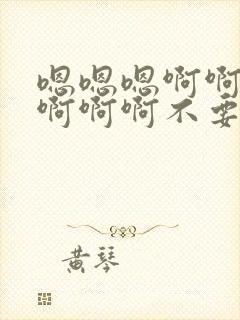 嗯嗯嗯啊啊
啊啊啊不要
黄琴